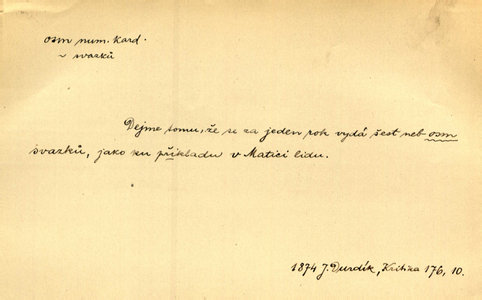 osm num. kard.
~ svazků
Dejme tomu, že se za jeden rok vydá šest neb osm
svazků, jako ku příkladu v Matici lidu.
1874 J. Durdík, Kritika 176, 10.